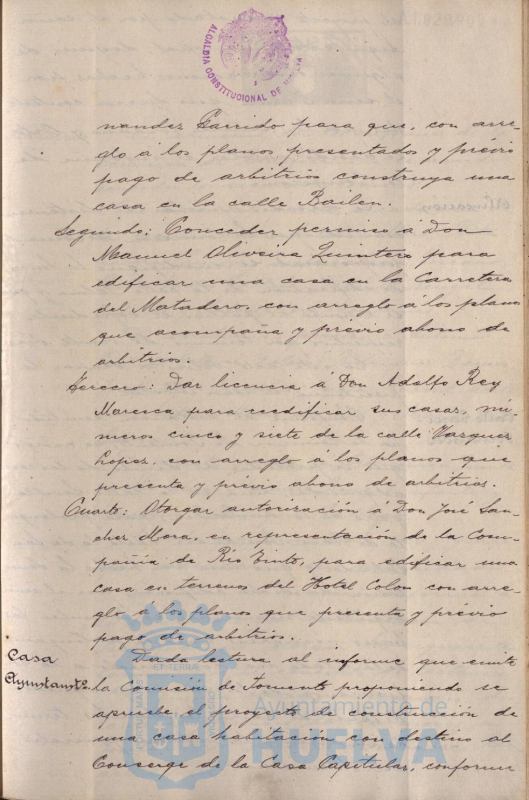 ALCALDIA CONSTITUCIONAL DE HUELVA
nandez Garrido para que, con arre-
glo á los planos presentados y prévio
pago de arbitrios construya una
casa en la calle Bailen.
Segundo: Conceder permiso a Don
Manuel Oliveira Quintero para
edificar una casa en la Carretera
del Matadero, con arreglo á los planos
que acompaña y prévio abono de
arbitrios.
Tercero: Dar licencia á Don Adolfo Rey
Moresca para reedificar sus casas, nú-
meros cinco y siete de la calle Vazquez
Lopez, con arreglo á los planos que
presenta y prévio abono de arbitrios.
Cuarto: Otorgar autorización á Don José San-
chez Mora, en representación de la Com-
pañía de Rio Tinto, para edificar una
casa en terrenos del Hotel Colon con arre-
glo á los planos que presenta y prévio
pago de arbitrios.
Casa
Ayuntamtº
Dada lectura al informe que emite
la Comisión de Fomento proponiendo se
apruebe el proyecto de construcción de
una casa habitación con destino al
Conserge de la Casa Capitular, conforme
Ayuntamiento de
HUELVA